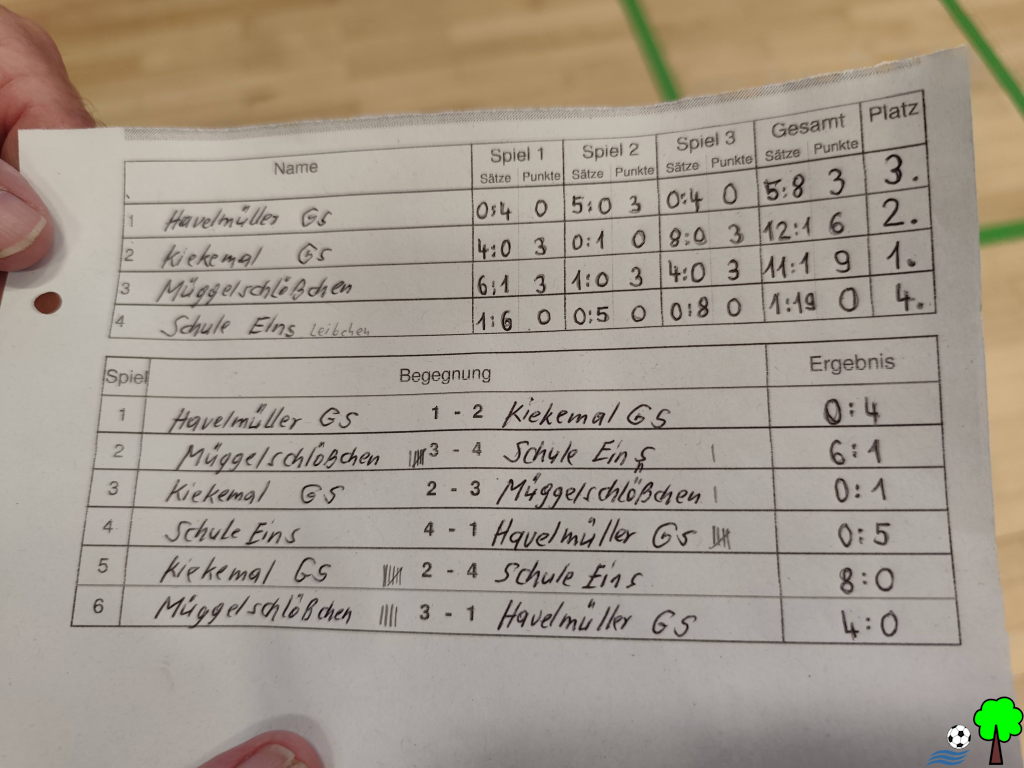 Name Spiel 1 Spiel 2 Spiel 3 Gesamt Platz
Sätze Punkte Sätze Punkte Sätze Punkte Sätze Punkte
1 Havelmüller GS 0:4 0 5:0 3 0:4 0 5:8 3 3.
2 Kiekemal GS 4:0 3 0:1 0 8:0 3 12:1 6 2.
3 Müggelschlößchen 6:1 3 1:0 3 4:0 3 11:1 9 1.
4 Schule EIns Leibchen 1:6 0 0:5 0 0:8 0 1:19 0 4.
Spiel Begegnung Ergebnis
1 Havelmüller GS 1 - 2 Kiekemal GS 0:4
2 Müggelschlößchen 3 - 4 Schule Eins 6:1
3 Kiekemal GS 2 - 3 Müggelschlößchen 0:1
4 Schule Eins 4 - 1 Havelmüller GS 0:5
5 Kiekemal GS 2 - 4 Schule Eins 8:0
6 Müggelschlößchen 3 - 1 Havelmüller GS 4:0